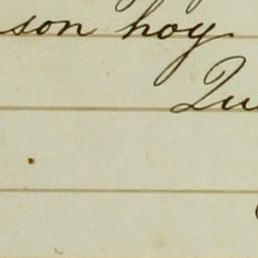 son hoy
Qu